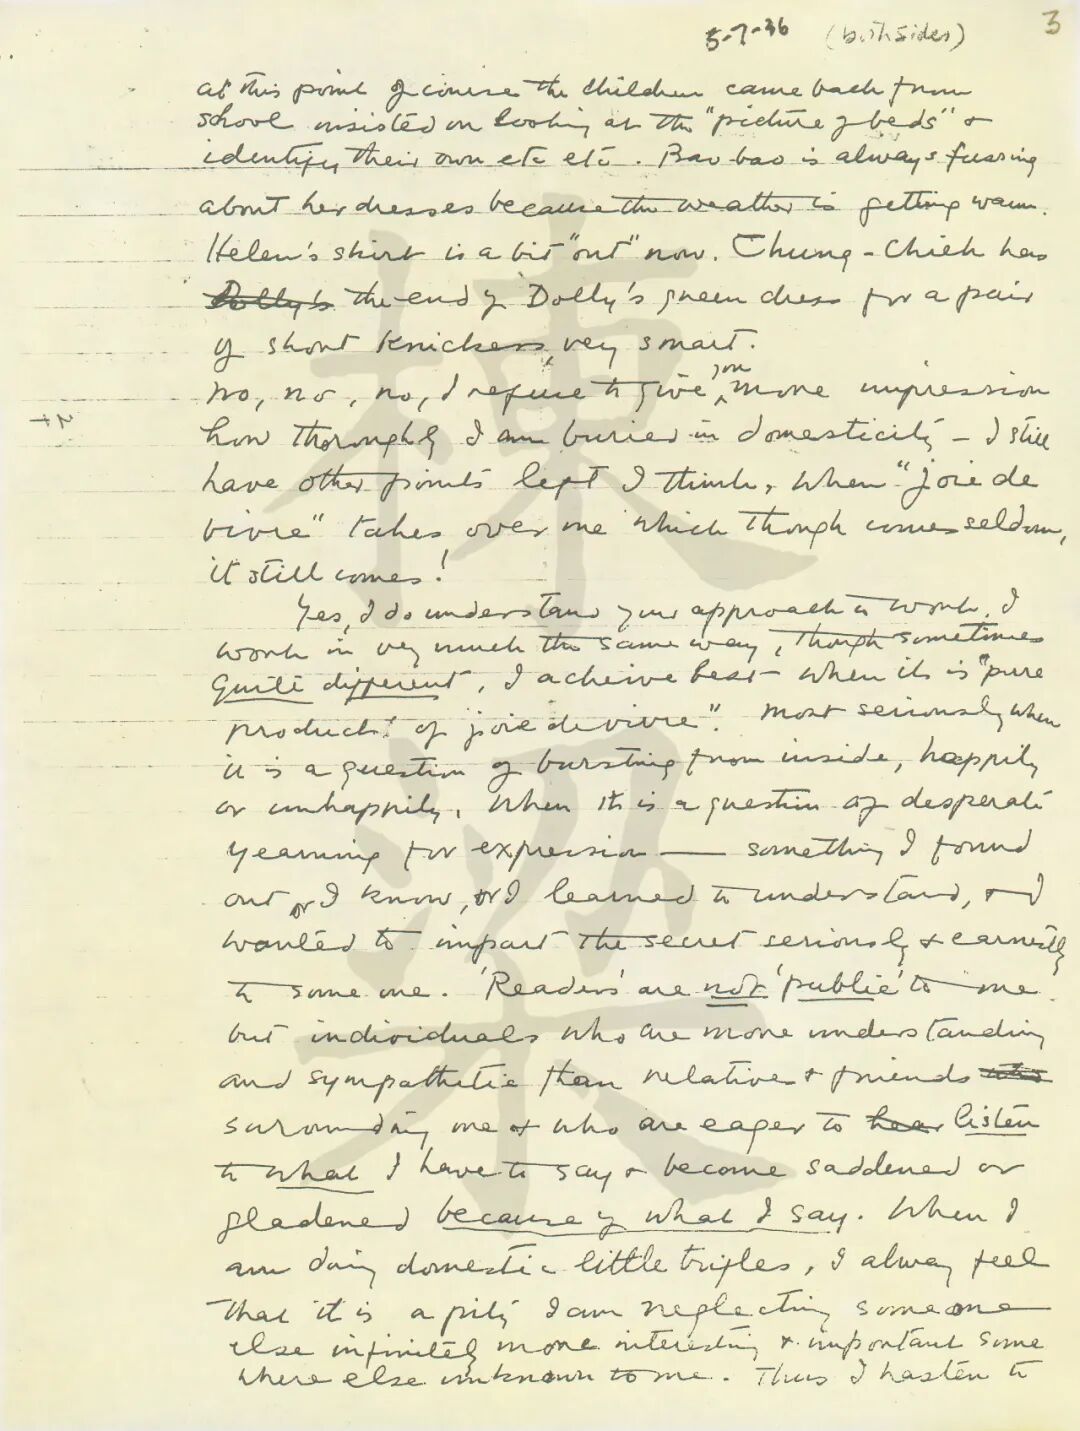 5-7-36 (both sides) 3
at this point of course the children came back from
school insisted on looking at the "picture of beds" &
identify their own etc etc. Bao-bao is always fussing
about her dresses because the weather is getting warm.
Helen's shirt is a bit "out" now. Chung-Chieh has
Dolly's the end of Dolly's green dress for a pair
of short knickers, very smart.
No, no, no, I refuse to give you more impression
how thoroughly I am buried in domesticity – I still
have other points left I think, when "joie de
vivre" takes over me which though comes seldom,
it still comes!
Yes, I do understand your approach to work. I
work in very much the same way, though sometimes
quite different, I acheive best when it is "pure
product" of "joie de vivre". Most seriously when
it is a question of bursting from inside, happily
or unhappily. When it is a question of desperate
yearning for expression — something I found
out or I know, or I learned to understand, & I
wanted to impart the secret seriously & earnestly
to some one. 'Readers' are not 'public' to me
but individuals who are more understanding
and sympathetic than relatives & friends who
surrounding me & who are eager to hear listen
to what I have to say & become saddened or
gladened because of what I say. When I
am doing domestic little trifles, I alway feel
that it is a pity I am neglecting some one
else infinitely more interesting & important some
where else unknown to me. Thus I hasten to